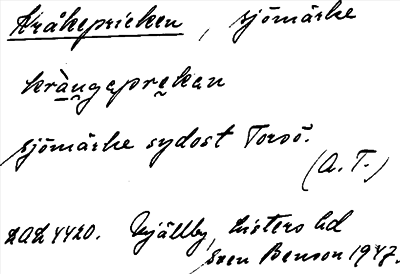 Kråkepricken, sjömärke
kràngaprekan
sjömärke sydost Torsö.
(A. T.)
LAL 4420. Mjällby, Listers hd
Sven Benson 1947.